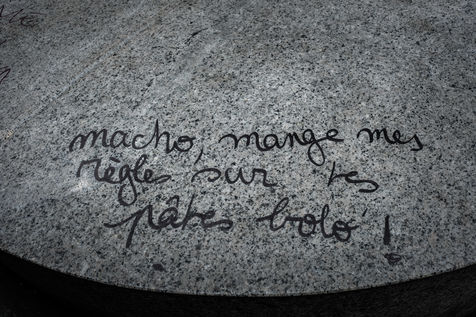 macho, mange mes
règles sur tes
pâtes bolo !